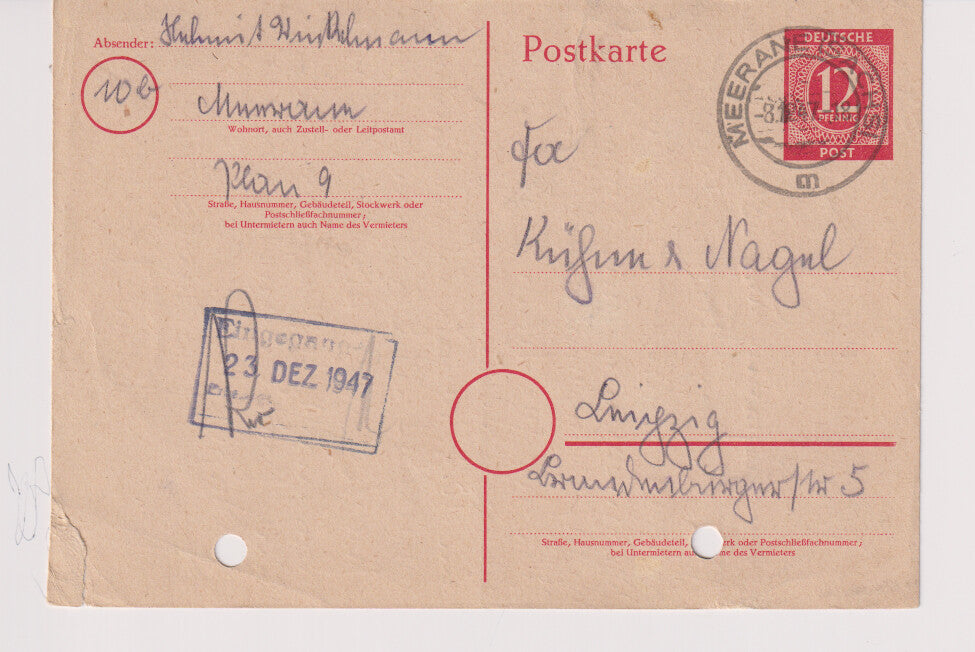 Absender: Helmut Winkelmann
10b
Meerane
Wohnort, auch Zustell- oder Leitpostamt
Plan 9
Straße, Hausnummer, Gebäudeteil, Stockwerk oder
Postschließfachnummer;
bei Untermietern auch Name des Vermieters
Eingegang
23. DEZ 1947
Postkarte
DEUTSCHE
12
PFENNIG
POST
MEERANE
m
Fa
Kühne & Nagel
Leipzig
Brandenburgerstr 5
Straße, Hausnummer, Gebäudeteil, werk oder Postschließfachnummer;
bei Untermietern au me des Vermieters